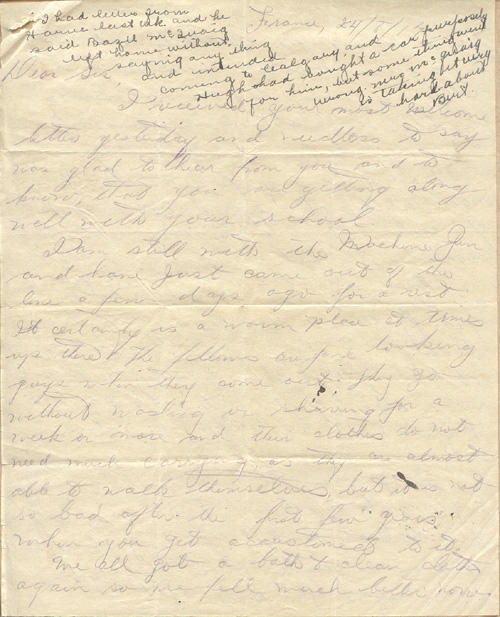 I had letter from
Home last wk and he
said Bazil McQuaig
left home without
saying any thing
and intended
coming to Calgary and
Hugh had bought a car purposely
for him, but some thing went
wrong. Mrs McQuaig
is taking it very
hard about
Burt
France 24/5/
Dear Sis
I received your most welcome
letter yesterday and needless to say
was glad to hear from you and to
know, that you are getting along
well with your school
I am still with the Machine Gun
and have just came out of the
line a few days ago for a rest
It certainly is a warm place at times
up there The fellows are fine looking
guys when they come out. They go
without washing or shaving for a
week or more and their clothes do not
need much carrying, as they are almost
able to walk themselves, but it is not
so bad after the first few
when you get accustomed to it.
We all got a bath & clean clothes
again so we feel much better now.